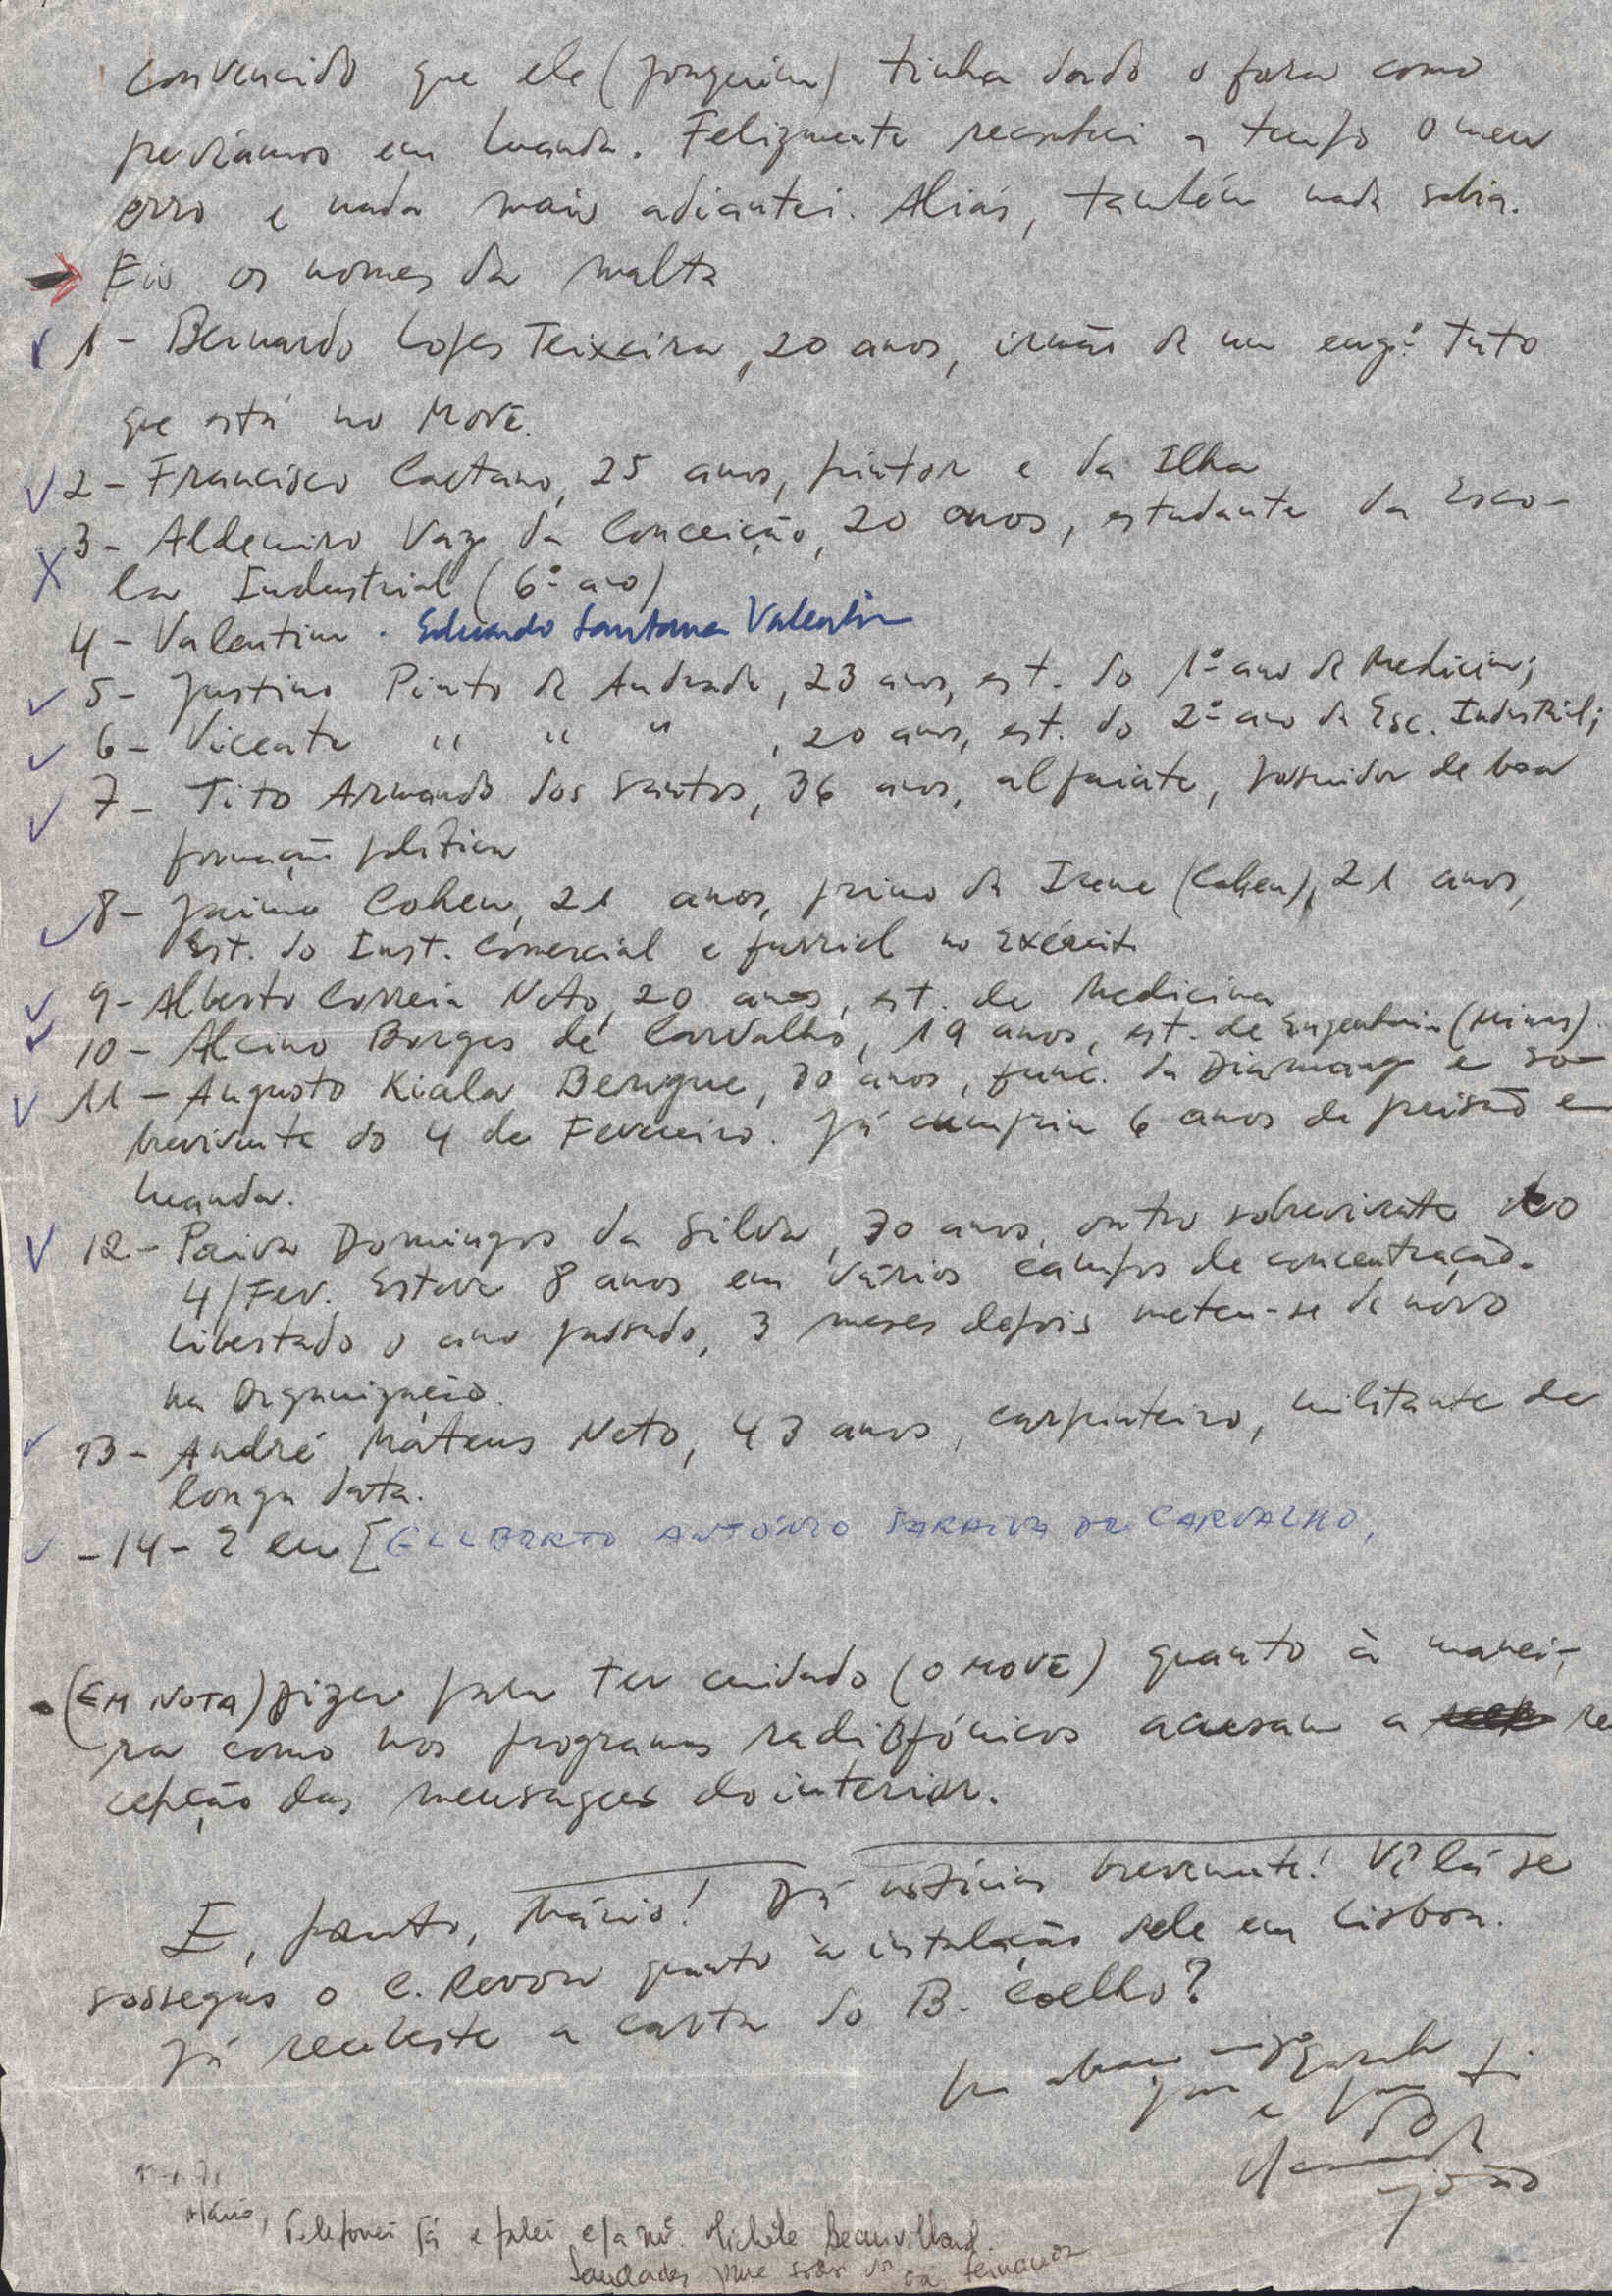 convencido que ele (Joaquim) tinha dado o fora como
prevíamos em Luanda. Felizmente reconheci a tempo o meu
erro e nada mais adiantei. Aliás, também nada sabia.
Eis os nomes da malta
1 - Bernardo Lopes Teixeira, 20 anos, irmão de um engº. Tuto
que está no Movê.
2 - Francisco Caetano, 25 anos, pintor e da Ilha
3 - Aldemiro Vaz da Conceição, 20 anos, estudante da Esco-
la Industrial (6º ano)
4 - Valentim. Eduardo Santana Valentim
5 - Justino Pinto de Andrade, 23 anos, est. do 1º ano de Medicina;
6 - Vicente " " " , 20 anos, est. do 2º ano da Esc. Industrial;
7 - Tito Armando dos Santos, 36 anos, alfaiate, possuidor de boa
formação política
8 - Jaime Cohen, 21 anos, primo da Irene (Cohen), 21 anos,
Est. do Inst. Comercial e furriel no Exército
9 - Alberto Correia Neto, 20 anos, est. de Medicina
10 - Alcino Borges de Carvalho, 19 anos, est. de Engenharia (Minas).
11 - Augusto Kiala Bengue, 30 anos, func. da Diamang e so-
brevivente do 4 de Fevereiro. Já cumpriu 6 anos de prisão em
Luanda.
12 - Paiva Domingos da Silva, 30 anos, outro sobrevivente do
4/Fev. Esteve 8 anos em vários campos de concentração.
Libertado o ano passado, 3 meses depois meteu-se de novo
na Organização.
13 - André Mateus Neto, 43 anos, carpinteiro, militante de
longa data.
- 14 - ? em [GILBERTO ANTÓNIO SARAIVA DE CARVALHO,
(EM NOTA) Dizer para ter cuidado (O MOVÊ) quanto à manei-
ra como nos programas radiofónicos acusam a re
cepção das mensagens do interior.
E, pronto, Mário! Dá notícias brevemente! Vê lá se
sossegas o C. Revow quanto à instalação dele em Lisboa.
Já recebeste a carta do B. Coelho?
abraço
e para ti
do
João
Mário,
Telefonei já e falei c/a Mª. Michèle Beauvillard.
Saudades para